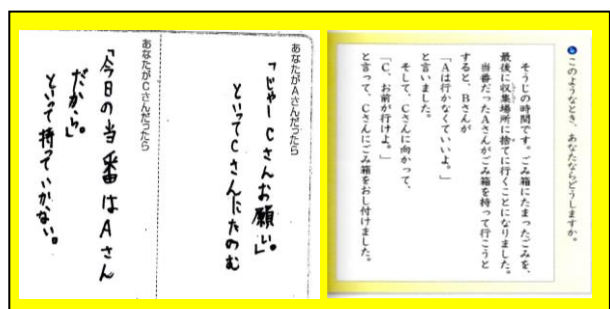 このようなとき、あなたならどうしますか。
そうじの時間です。ごみ箱にたまったごみを、
最後に収集場所に捨てに行くことになりました。
当番だったAさんがごみ箱を持って行こうと
すると、Bさんが
「Aは行かなくていいよ。」
と言いました。
そして、Cさんに向かって、
「C、お前が行けよ。」
と言って、Cさんにごみ箱をおし付けました。
あなたがAさんだったら
「じゃーCさんお願い。」
といってCさんにたのむ
あなたがCさんだったら
「今日の当番はAさん
だから。」
といって持っていかない。